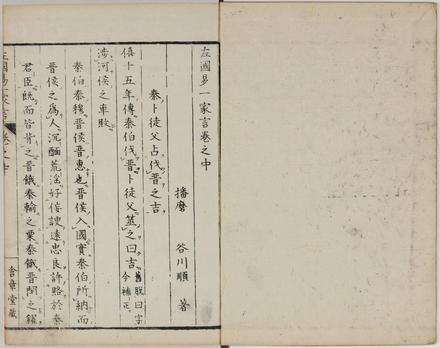 左國易一家言卷之中
播磨 谷川順 著
秦卜徒父占伐晉之吉
僖十五年傳秦伯伐晉卜徒父筮之曰吉舊脫曰字今補正
涉河侯之車敗
秦伯秦穆晉侯晉惠也晉侯入國實秦伯所納而
晉侯之爲人沉酗荒淫好佞諛遠忠良許賂於秦
君臣既而皆背之晉饑秦輸之粟秦饑晉閉之糴
左國易一家言 卷之中
含章堂藏